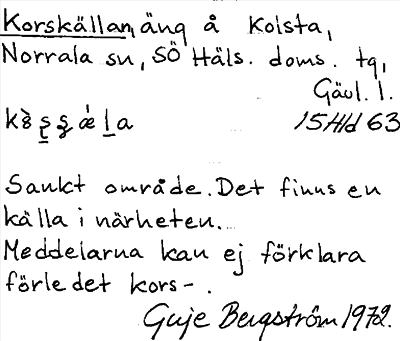 Korskällan, äng å Kolsta,
Norrala sn, SÖ Häls. doms. tg,
Gävl. l.
15 Hld 63
Sankt område. Det finns en
källa i närheten.
Meddelarna kan ej förklara
förledet kors-.
Guje Bergström 1972.